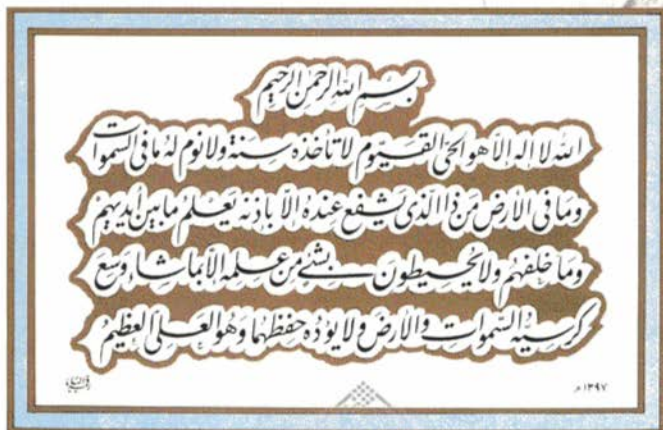 بسم الله الرحمن الرحيم
الله لا إله إلا هو الحي القيوم لا تأخذه سنة ولا نوم له ما في السموات
وما في الأرض من ذا الذي يشفع عنده إلا بإذنه يعلم ما بين أيديهم
وما خلفهم ولا يحيطون بشئ من علمه إلا بما شاء وسع
كرسيه السموات والأرض ولا يؤده حفظهما وهو العلي العظيم
١٣٩٧ م